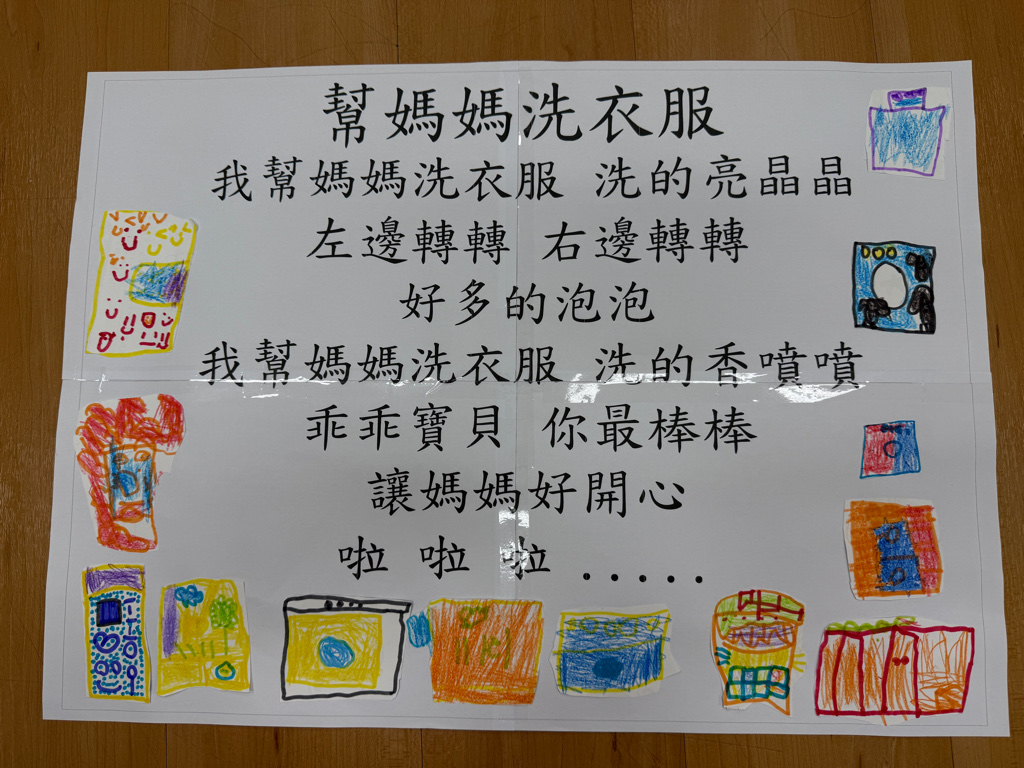 幫媽媽洗衣服
我幫媽媽洗衣服 洗的亮晶晶
左邊轉轉 右邊轉轉
好多的泡泡
我幫媽媽洗衣服 洗的香噴噴
乖乖寶貝 你最棒棒
讓媽媽好開心
啦 啦 啦 .....